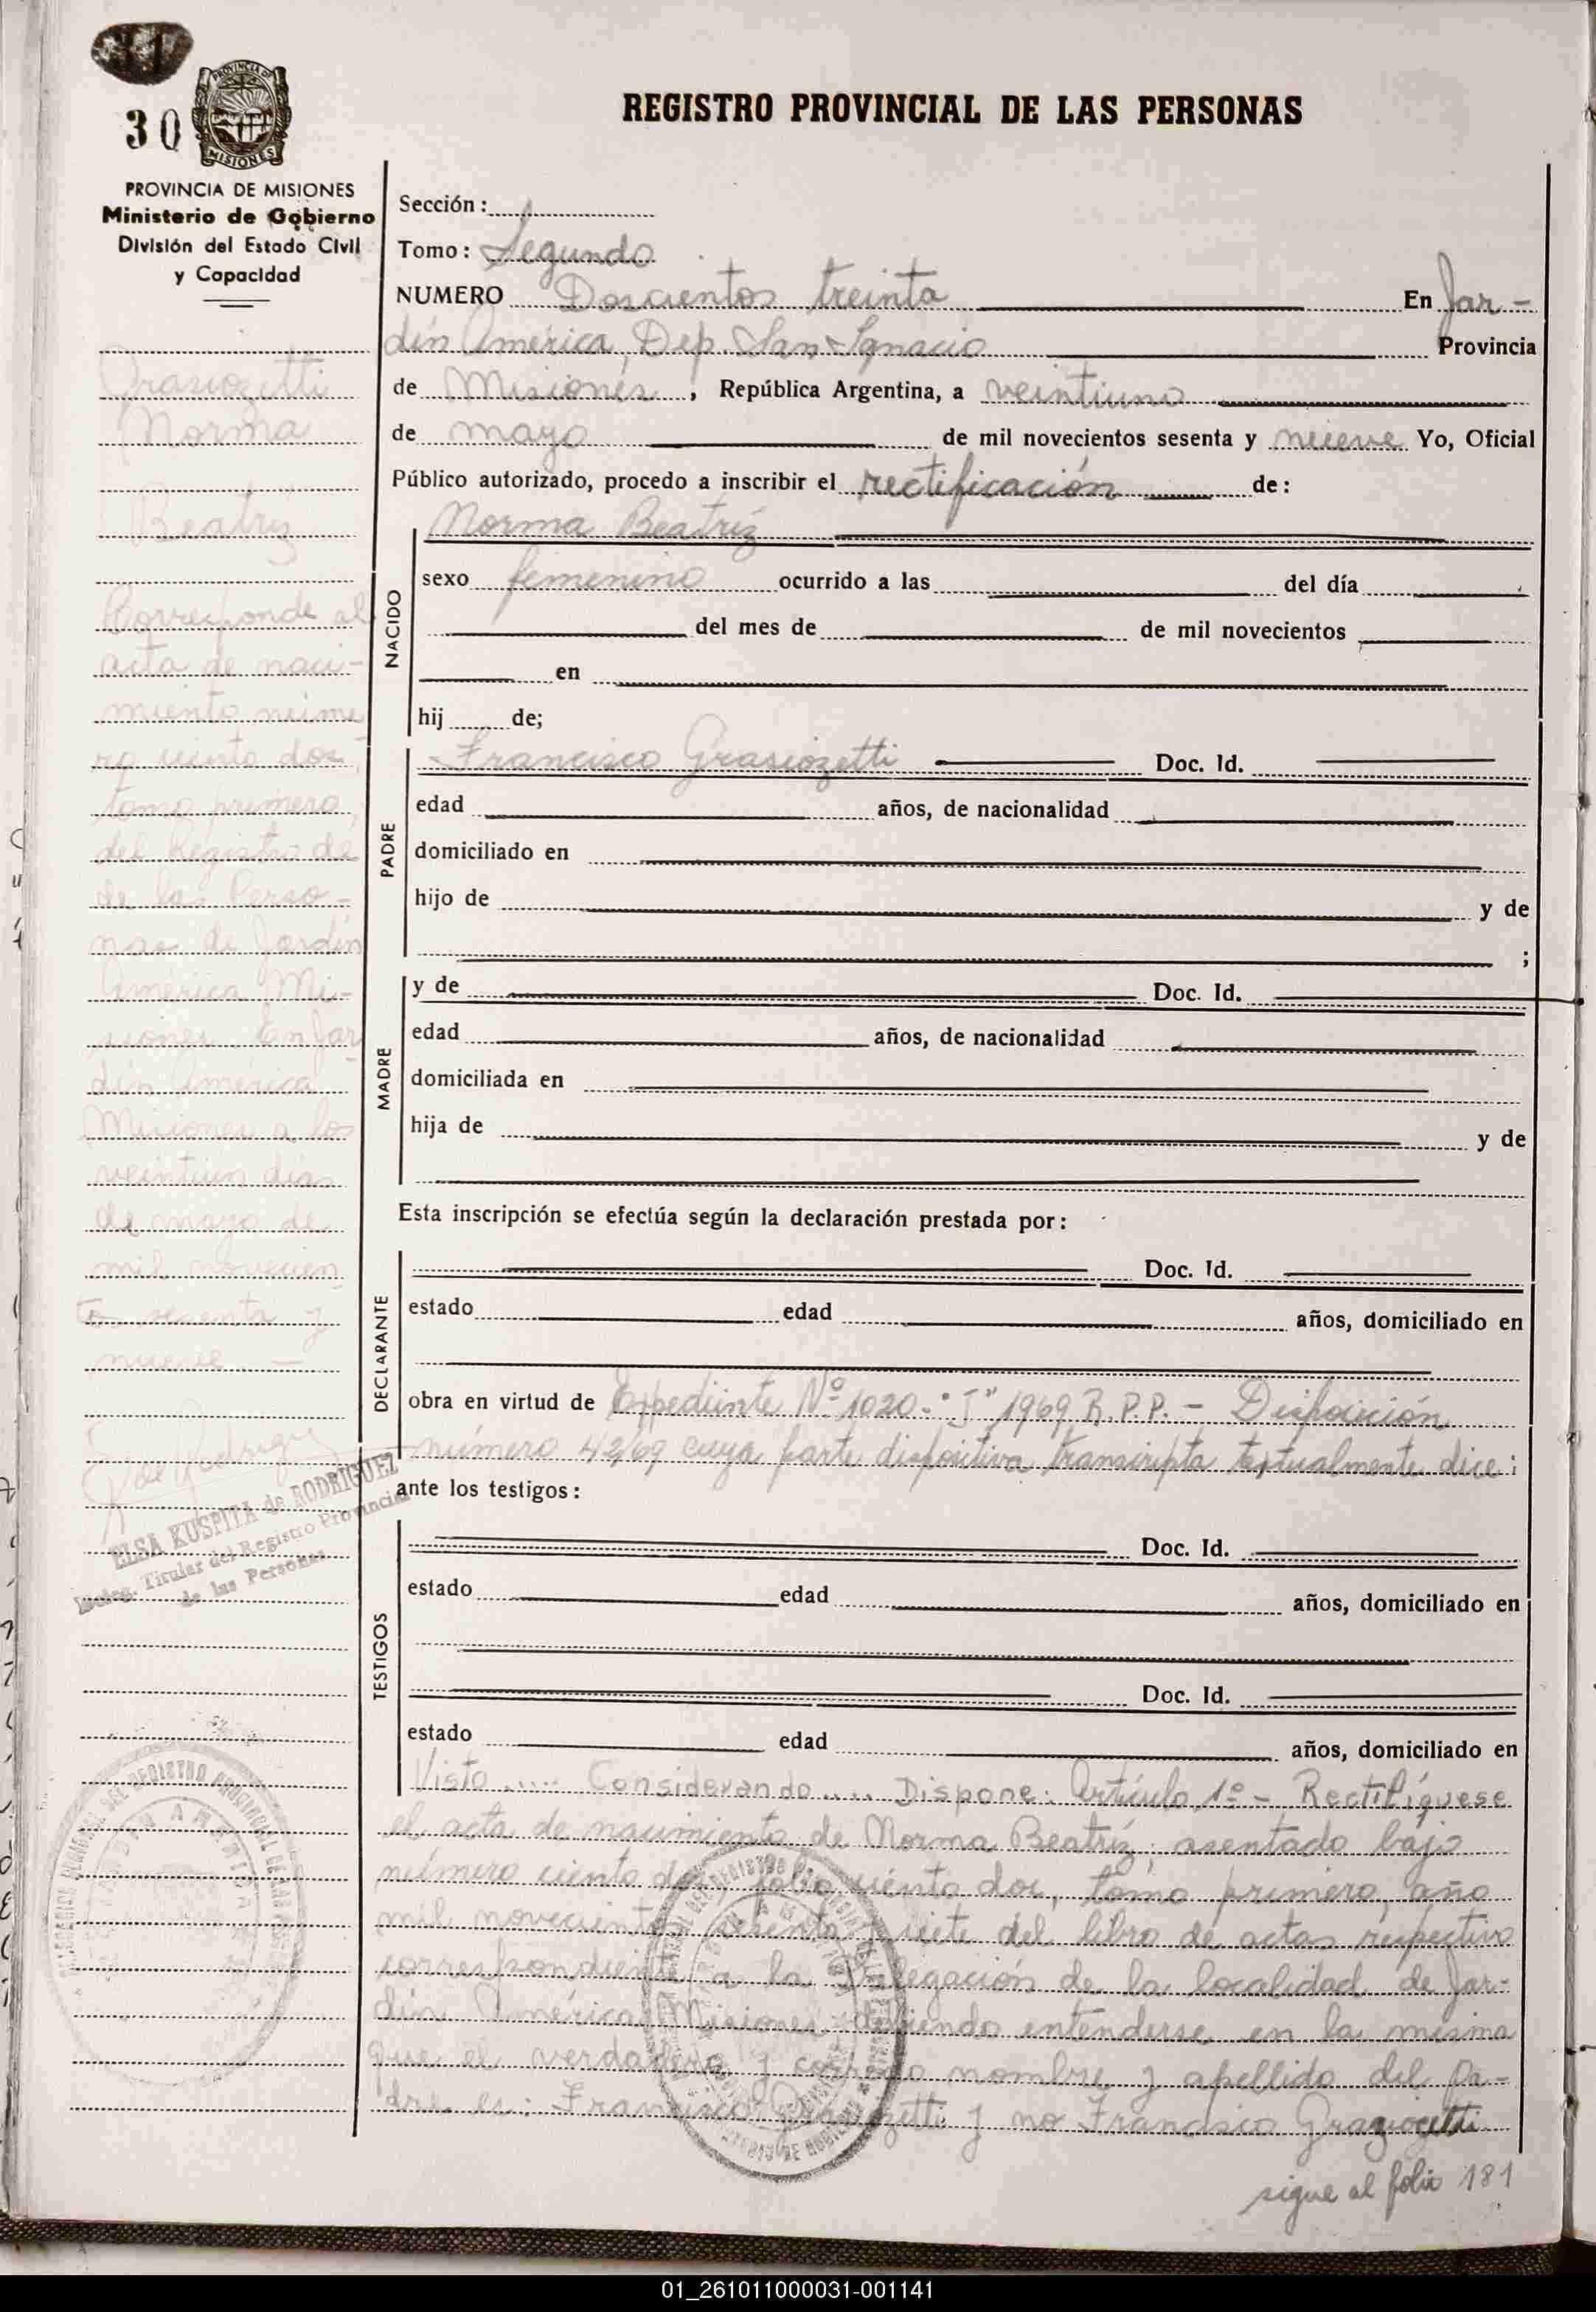 30
PROVINCIA DE MISIONES
MISIONES
PROVINCIA DE MISIONES
Ministerio de Gobierno
División del Estado Civil
y Capacidad
Grasiozetti
Norma
Beatriz
Corresponde al
acta de naci-
miento núme
ro ciento dos,
tomo primero,
del Registro de
de las Perso-
nas de Jardín
América, Mi-
siones. En Jar
dín América
Misiones a los
veintiun días
de mayo de
mil novecien
tos sesenta y
nueve. —
ELSA KUSPITA de RODRIGUEZ
Titular del Registro Provincial
de las Personas
REGISTRO PROVINCIAL DE LAS PERSONAS
Sección:
Tomo: Segundo
NUMERO Doscientos treinta En Jar-
dín América, Dep. San Ignacio Provincia
de Misiones, República Argentina, a veintiuno
de mayo de mil novecientos sesenta y nueve Yo, Oficial
Público autorizado, procedo a inscribir el rectificación de:
NACIDO
Norma Beatríz
sexo femenino ocurrido a las del día
del mes de de mil novecientos
en
hij de;
PADRE
Francisco Grasiozetti Doc. Id.
edad años, de nacionalidad
domiciliado en
hijo de y de
;
MADRE
y de Doc. Id.
edad años, de nacionalidad
domiciliada en
hija de y de
Esta inscripción se efectúa según la declaración prestada por:
DECLARANTE
Doc. Id.
estado edad años, domiciliado en
obra en virtud de Expediente Nº 1020-"J" 1969 R.P.P. - Disposición
número 42/69 cuya parte dispositiva transcripta textualmente dice:
ante los testigos:
TESTIGOS
Doc. Id.
estado edad años, domiciliado en
Doc. Id.
estado edad años, domiciliado en
Visto..... Considerando..... Dispone: Artículo 1º - Rectifíquese
el acta de nacimiento de Norma Beatríz, asentado bajo
número ciento dos, folio ciento dos, tomo primero, año
mil novecientos sesenta y siete del libro de actas respectivo
correspondiente a la Delegación de la localidad de Jar-
dín América, Misiones, debiendo entenderse en la misma
que el verdadero y correcto nombre y apellido del pa-
dre es: Francisco Grasiozetti y no Francisco Graziozetti
sigue al folio 181
01_261011000031-001141